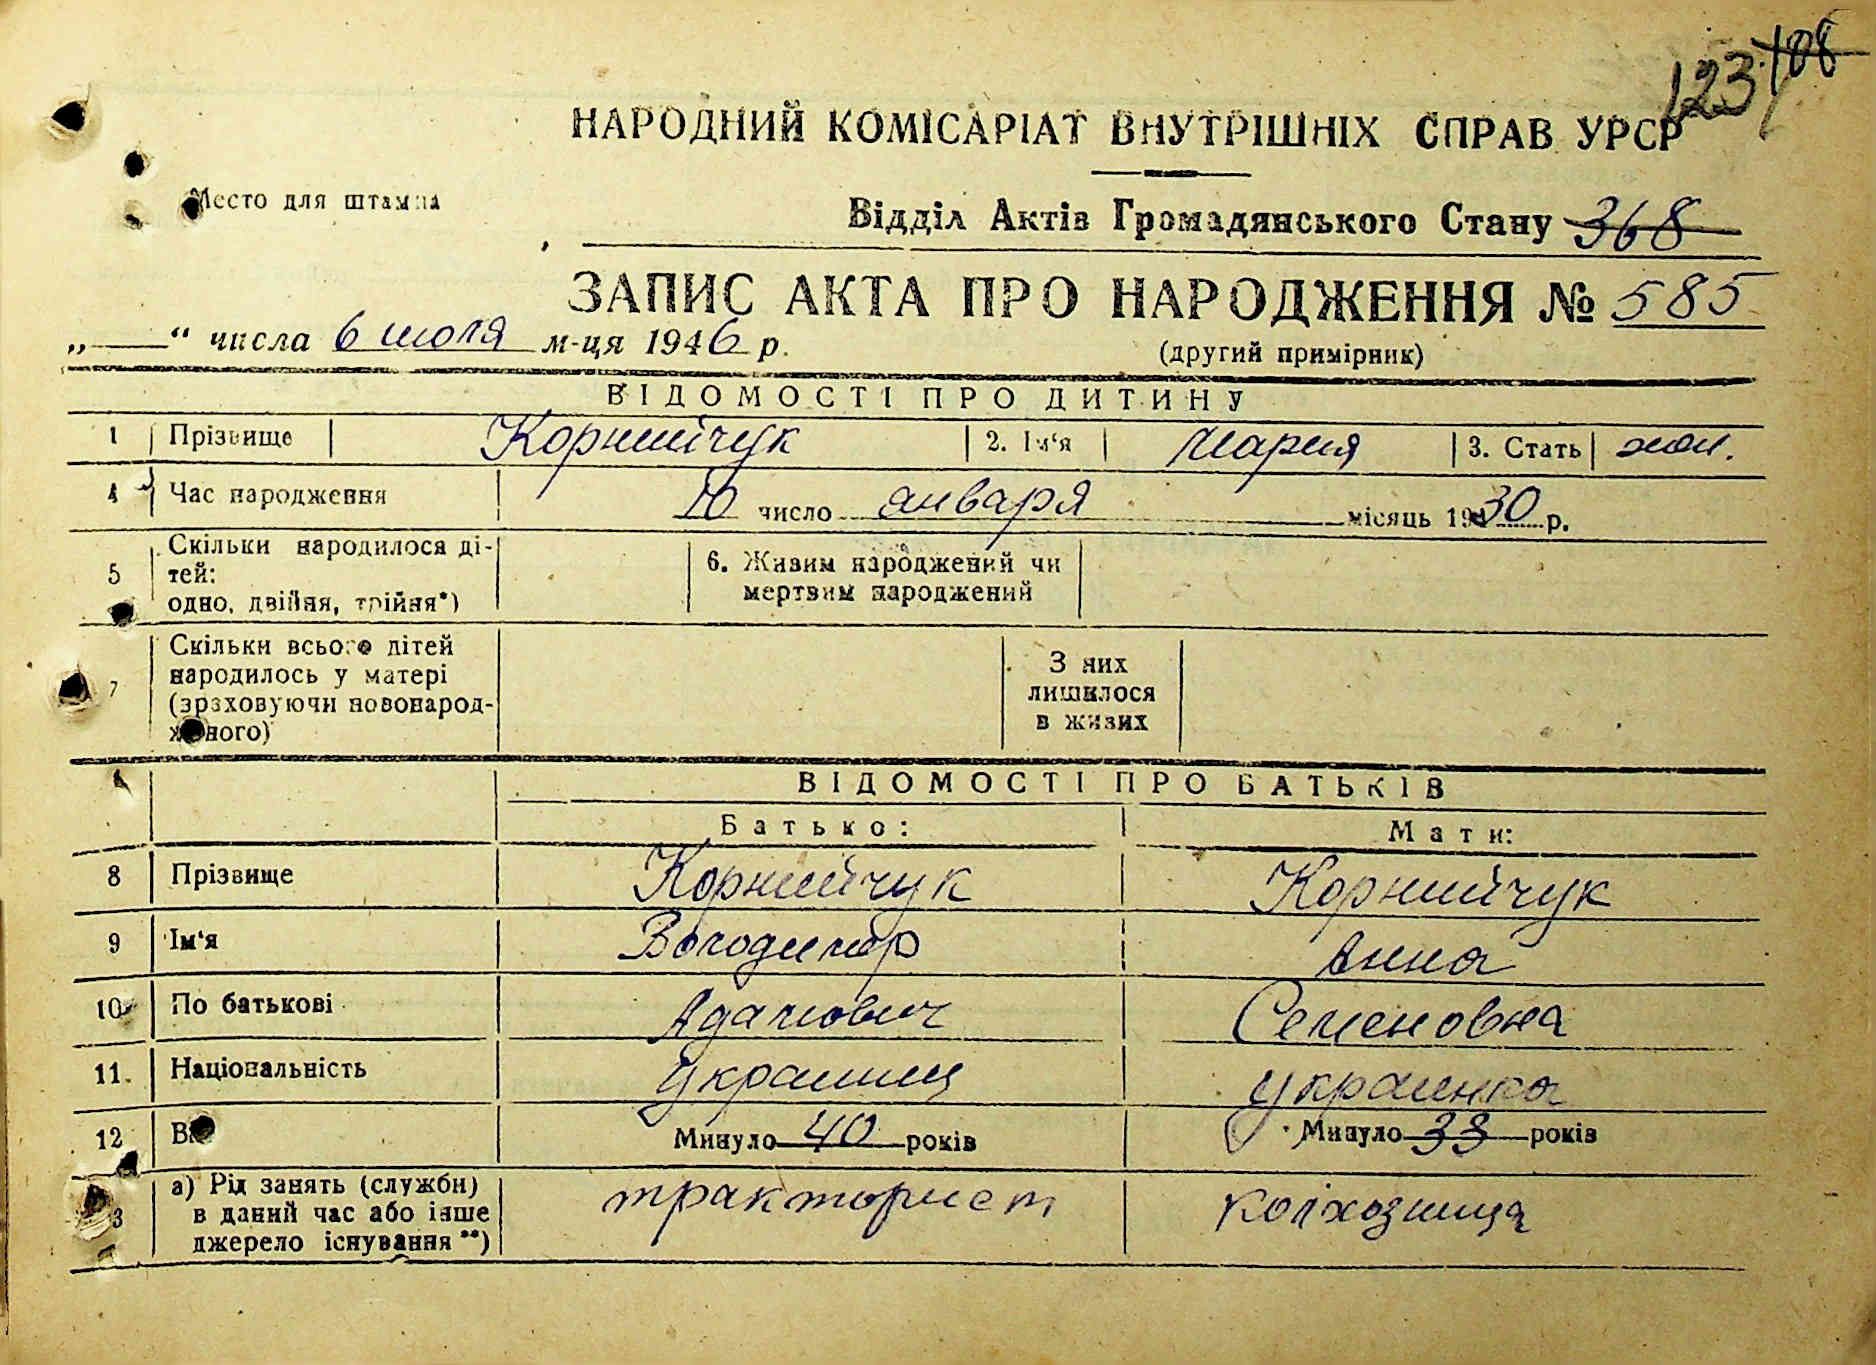 123 108
НАРОДНИЙ КОМІСАРІАТ ВНУТРІШНІХ СПРАВ УРСР
Место для штампа
Відділ Актів Громадянського Стану 368
ЗАПИС АКТА ПРО НАРОДЖЕННЯ № 585
„ “ числа 6 июля м-ця 1946 р.
(другий примірник)
ВІДОМОСТІ ПРО ДИТИНУ
1 Прізвище Корнийчук 2. Ім'я Мария 3. Стать жен.
4 Час народження 10 число января місяць 1930 р.
5 Скільки народилося ді-
тей:
одно, двійня, трійня*)
6. Живим народжений чи
мертвим народжений
7 Скільки всього дітей
народилось у матері
(зраховуючи новонарод-
женого)
З них
лишилося
в живих
ВІДОМОСТІ ПРО БАТЬКІВ
Батько: Мати:
8 Прізвище Корнийчук Корнийчук
9 Ім'я Володимир Анна
10 По батькові Адамович Семеновна
11. Національність украинец украинка
12 Вік Минуло 40 років Минуло 33 років
13 а) Рід занять (служби)
в даний час або інше
джерело існування **)
тракторист колхозница